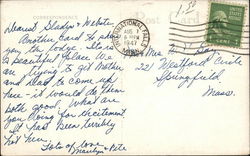 Dearest Gladys & Webster
Another card to show
you the lodge. It is
a beautiful place. We
are trying to get Mother
and Dad to come up
here - it would do them
both good. What are
you doing for excitement
It has been terribly
hot here.
Lots of love
Marilyn & Nate
INTERNATIONAL FALLS
AUG 7
1947
MINN.
1:30
221 Westford Circle
Springfield
Mass.